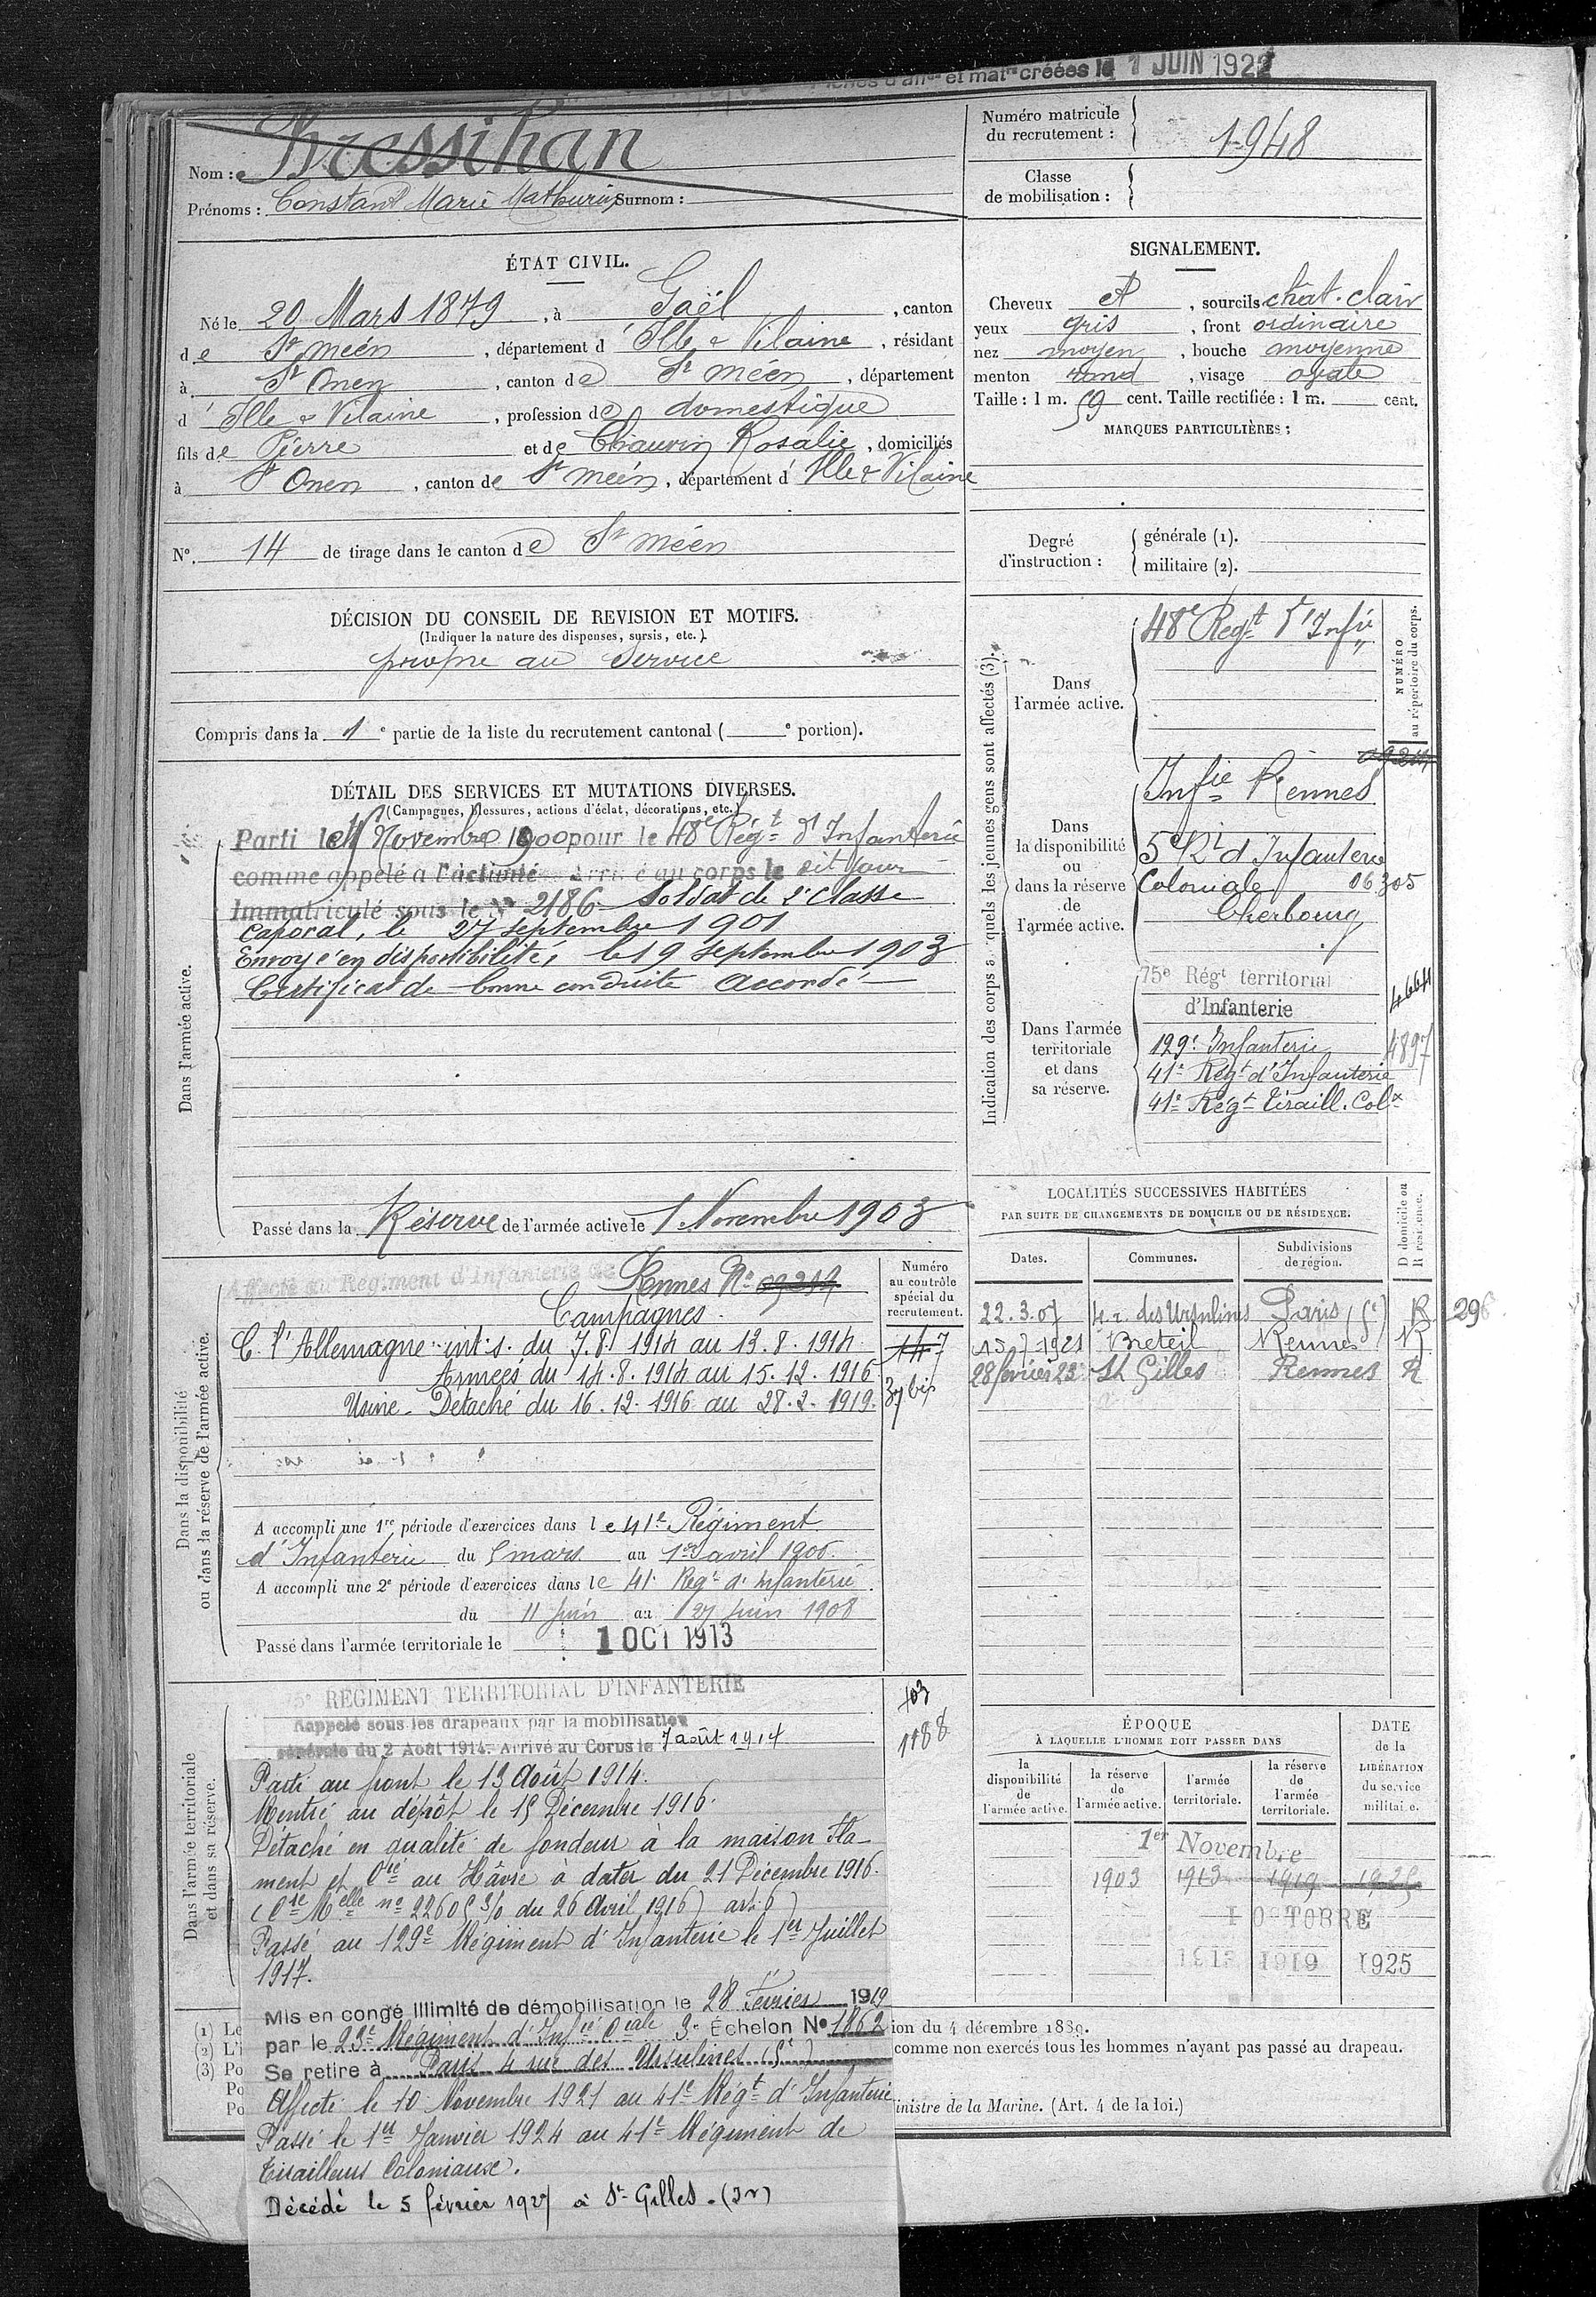 fiches d'affon et matle créées le 1 JUIN 1922
Nom : Bressihan
Prénoms : Constant Marie Mathurin Surnom :
Numéro matricule
du recrutement : 1948
Classe
de mobilisation :
ÉTAT CIVIL.
Né le 20 Mars 1879, à Gaël, canton
de St méen, département d'Ille & Vilaine, résidant
à St Onen, canton de St méen, département
d'Ille & Vilaine, profession de domestique
fils de Pierre et de Chauvin Rosalie, domiciliés
à St Onen, canton de St méen, département d'Ille & Vilaine
N° 14 de tirage dans le canton de St méen
SIGNALEMENT.
Cheveux et, sourcils chât. clair
yeux gris, front ordinaire
nez moyen, bouche moyenne
menton rond, visage ovale
Taille : 1 m. 59 cent. Taille rectifiée : 1 m. cent.
MARQUES PARTICULIÈRES :
Degré
d'instruction :
générale (1).
militaire (2).
DÉCISION DU CONSEIL DE REVISION ET MOTIFS.
(Indiquer la nature des dispenses, sursis, etc.)
propre au service
Compris dans la 1e partie de la liste du recrutement cantonal ( e portion).
DÉTAIL DES SERVICES ET MUTATIONS DIVERSES.
(Campagnes, blessures, actions d'éclat, décorations, etc.)
Dans l'armée active.
Parti le Novembre 1900 pour le 48e Régt d'Infanterie
comme appelé à l'activité Arrivé au corps le dit jour
Immatriculé sous le N° 2186 Soldat de 2e classe
Caporal, le 27 septembre 1901
Envoyé en disponibilité, le 19 septembre 1903
Certificat de bonne conduite accordé
Passé dans la Réserve de l'armée active le 1 Novembre 1903
Indication des corps auxquels les jeunes gens sont affectés (3).
NUMÉRO
au répertoire du corps.
Dans
l'armée active.
48e Régt d'Infie
Dans
la disponibilité
ou
dans la réserve
de
l'armée active.
Infie Rennes
5e Rt d'Infanterie
Coloniale 06305
Cherbourg
Dans l'armée
territoriale
et dans
sa réserve.
75e Régt territorial
d'Infanterie
4664
129e Infanterie 4897
41e Régt d'Infanterie
41e Régt Tiraill. Colx
Dans la disponibilité
ou dans la réserve de l'armée active.
Numéro
au contrôle
spécial du
recrutement.
Affecté au Régiment d'Infanterie de Rennes N° 09214
Campagnes.
C. l'Allemagne int: s. du 7.8.1914 au 13.8.1914
Armées du 14.8.1914 au 15.12.1916
Usine - Détaché du 16.12.1916 au 28.2.1919.
147
37 bis
A accompli une 1re période d'exercices dans le 41e Régiment
d'Infanterie du 5 mars au 1er avril 1906.
A accompli une 2e période d'exercices dans le 41e Régt d'Infanterie
du 11 juin au 27 juin 1908
Passé dans l'armée territoriale le 1 OCT 1913
LOCALITÉS SUCCESSIVES HABITÉES
PAR SUITE DE CHANGEMENTS DE DOMICILE OU DE RÉSIDENCE.
Dates. Communes. Subdivisions de région. D domicile ou R résidence.
22.3.07 4 r. des Ursulines Paris (5e) R 296
15-7-1921 Breteil Rennes R
28 février 23 St Gilles Rennes R
Dans l'armée territoriale
et dans sa réserve.
75e RÉGIMENT TERRITORIAL D'INFANTERIE
Rappelé sous les drapeaux par la mobilisation
générale du 2 Août 1914. Arrivé au Corps le 7 août 1914
103
1188
Parti au front le 13 Août 1914.
Rentré au dépôt le 15 Décembre 1916.
Détaché en qualité de fondeur à la maison Fla-
ment et Cie au Hâvre à dater du 21 Décembre 1916.
(Cre Melle no 22605 3/0 du 26 Avril 1916) art. 6)
Passé au 129e Régiment d'Infanterie le 1er Juillet
1917.
Mis en congé illimité de démobilisation le 28 Février 1919
par le 23e Régiment d'Infie Ciale 3e Échelon N° 1862
Se retire à Paris 4 rue des Ursulines (5e)
Affecté le 10 Novembre 1921 au 41e Régt d'Infanterie
Passé le 1er Janvier 1924 au 41e Régiment de
Tirailleurs Coloniaux.
Décédé le 5 février 1927 à St-Gilles.
ÉPOQUE
À LAQUELLE L'HOMME DOIT PASSER DANS
la disponibilité de l'armée active.
la réserve de l'armée active.
l'armée territoriale.
la réserve de l'armée territoriale.
DATE
de la
LIBÉRATION
du service
militaire.
1er Novembre
1903 1913 1919 1925
1 OCTOBRE
1913 1919 1925
(1) Le
(2) L'i
(3) Po
Po
Po
ion du 4 décembre 1889.
comme non exercés tous les hommes n'ayant pas passé au drapeau.
inistre de la Marine. (Art. 4 de la loi.)